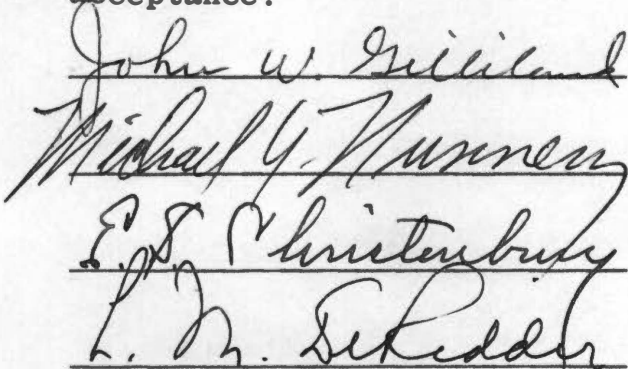 acceptance:
John W. Gilliland
Michael Y. Nunnery
E. S. Christenbury
L. M. DeRidder